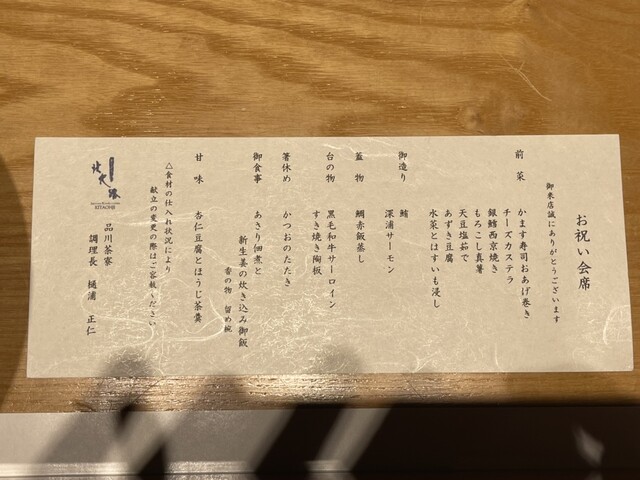 お祝い会席
御来店誠にありがとうございます
前菜
かます寿司おあげ巻き
チーズカステラ
銀鱈西京焼き
もろこし真薯
天豆塩茹で
あずき豆腐
水菜とはすいも浸し
御造り
鰆
深浦サーモン
蓋物
鯛赤飯蒸し
台の物
黒毛和牛サーロイン
すき焼き陶板
箸休め
かつおのたたき
御食事
あさり佃煮と
新生姜の炊き込み御飯
香の物 留め椀
甘味
杏仁豆腐とほうじ茶羹
△食材の仕入れ状況により
献立の変更の際はご容赦ください
北大路
KITAOHJI
品川茶寮
調理長 樋浦 正仁